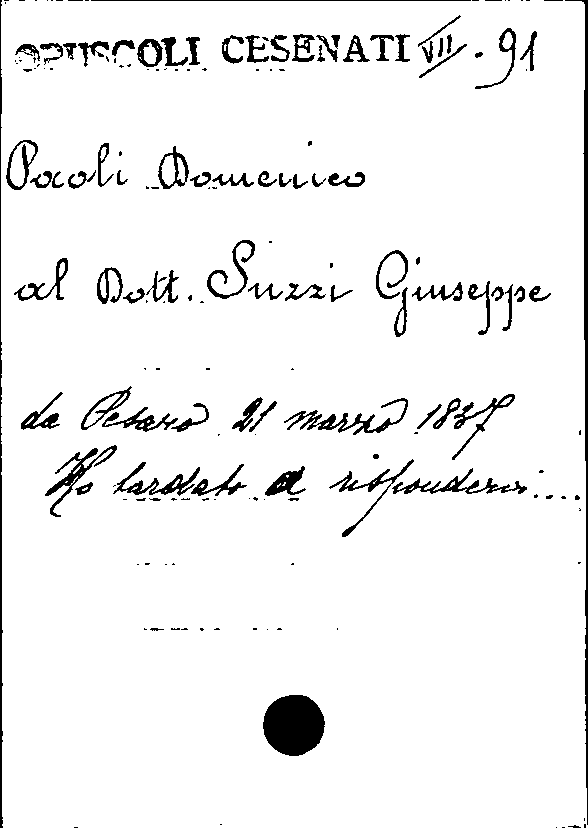 OPUSCOLI CESENATI VII. 91
Paoli Domenico
al Dott. Suzzi Giuseppe
da Pesaro 21 marzo 1837
Ho tardato a rispondervi....